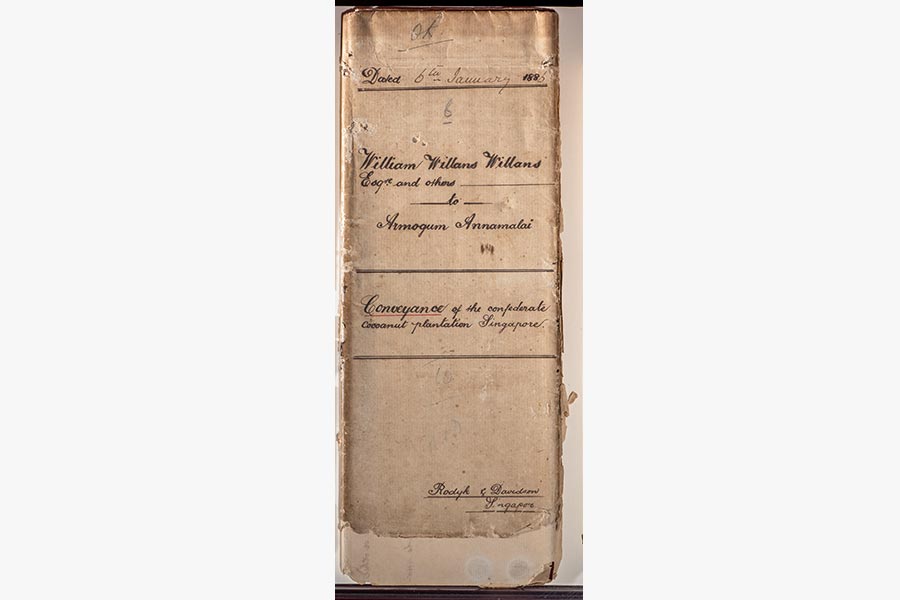 Dated 6th January 188
6
William Willans Willans
Esqre and others
to
Armogum Annamalai
Conveyance of the confederate
cocoanut plantation Singapore.
10
Rodyk & Davidson
Singapore